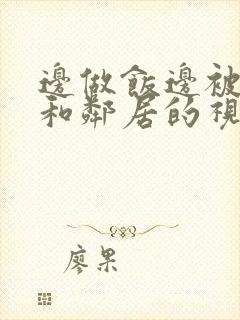 邊做飯邊被
和鄰居的視
廖果